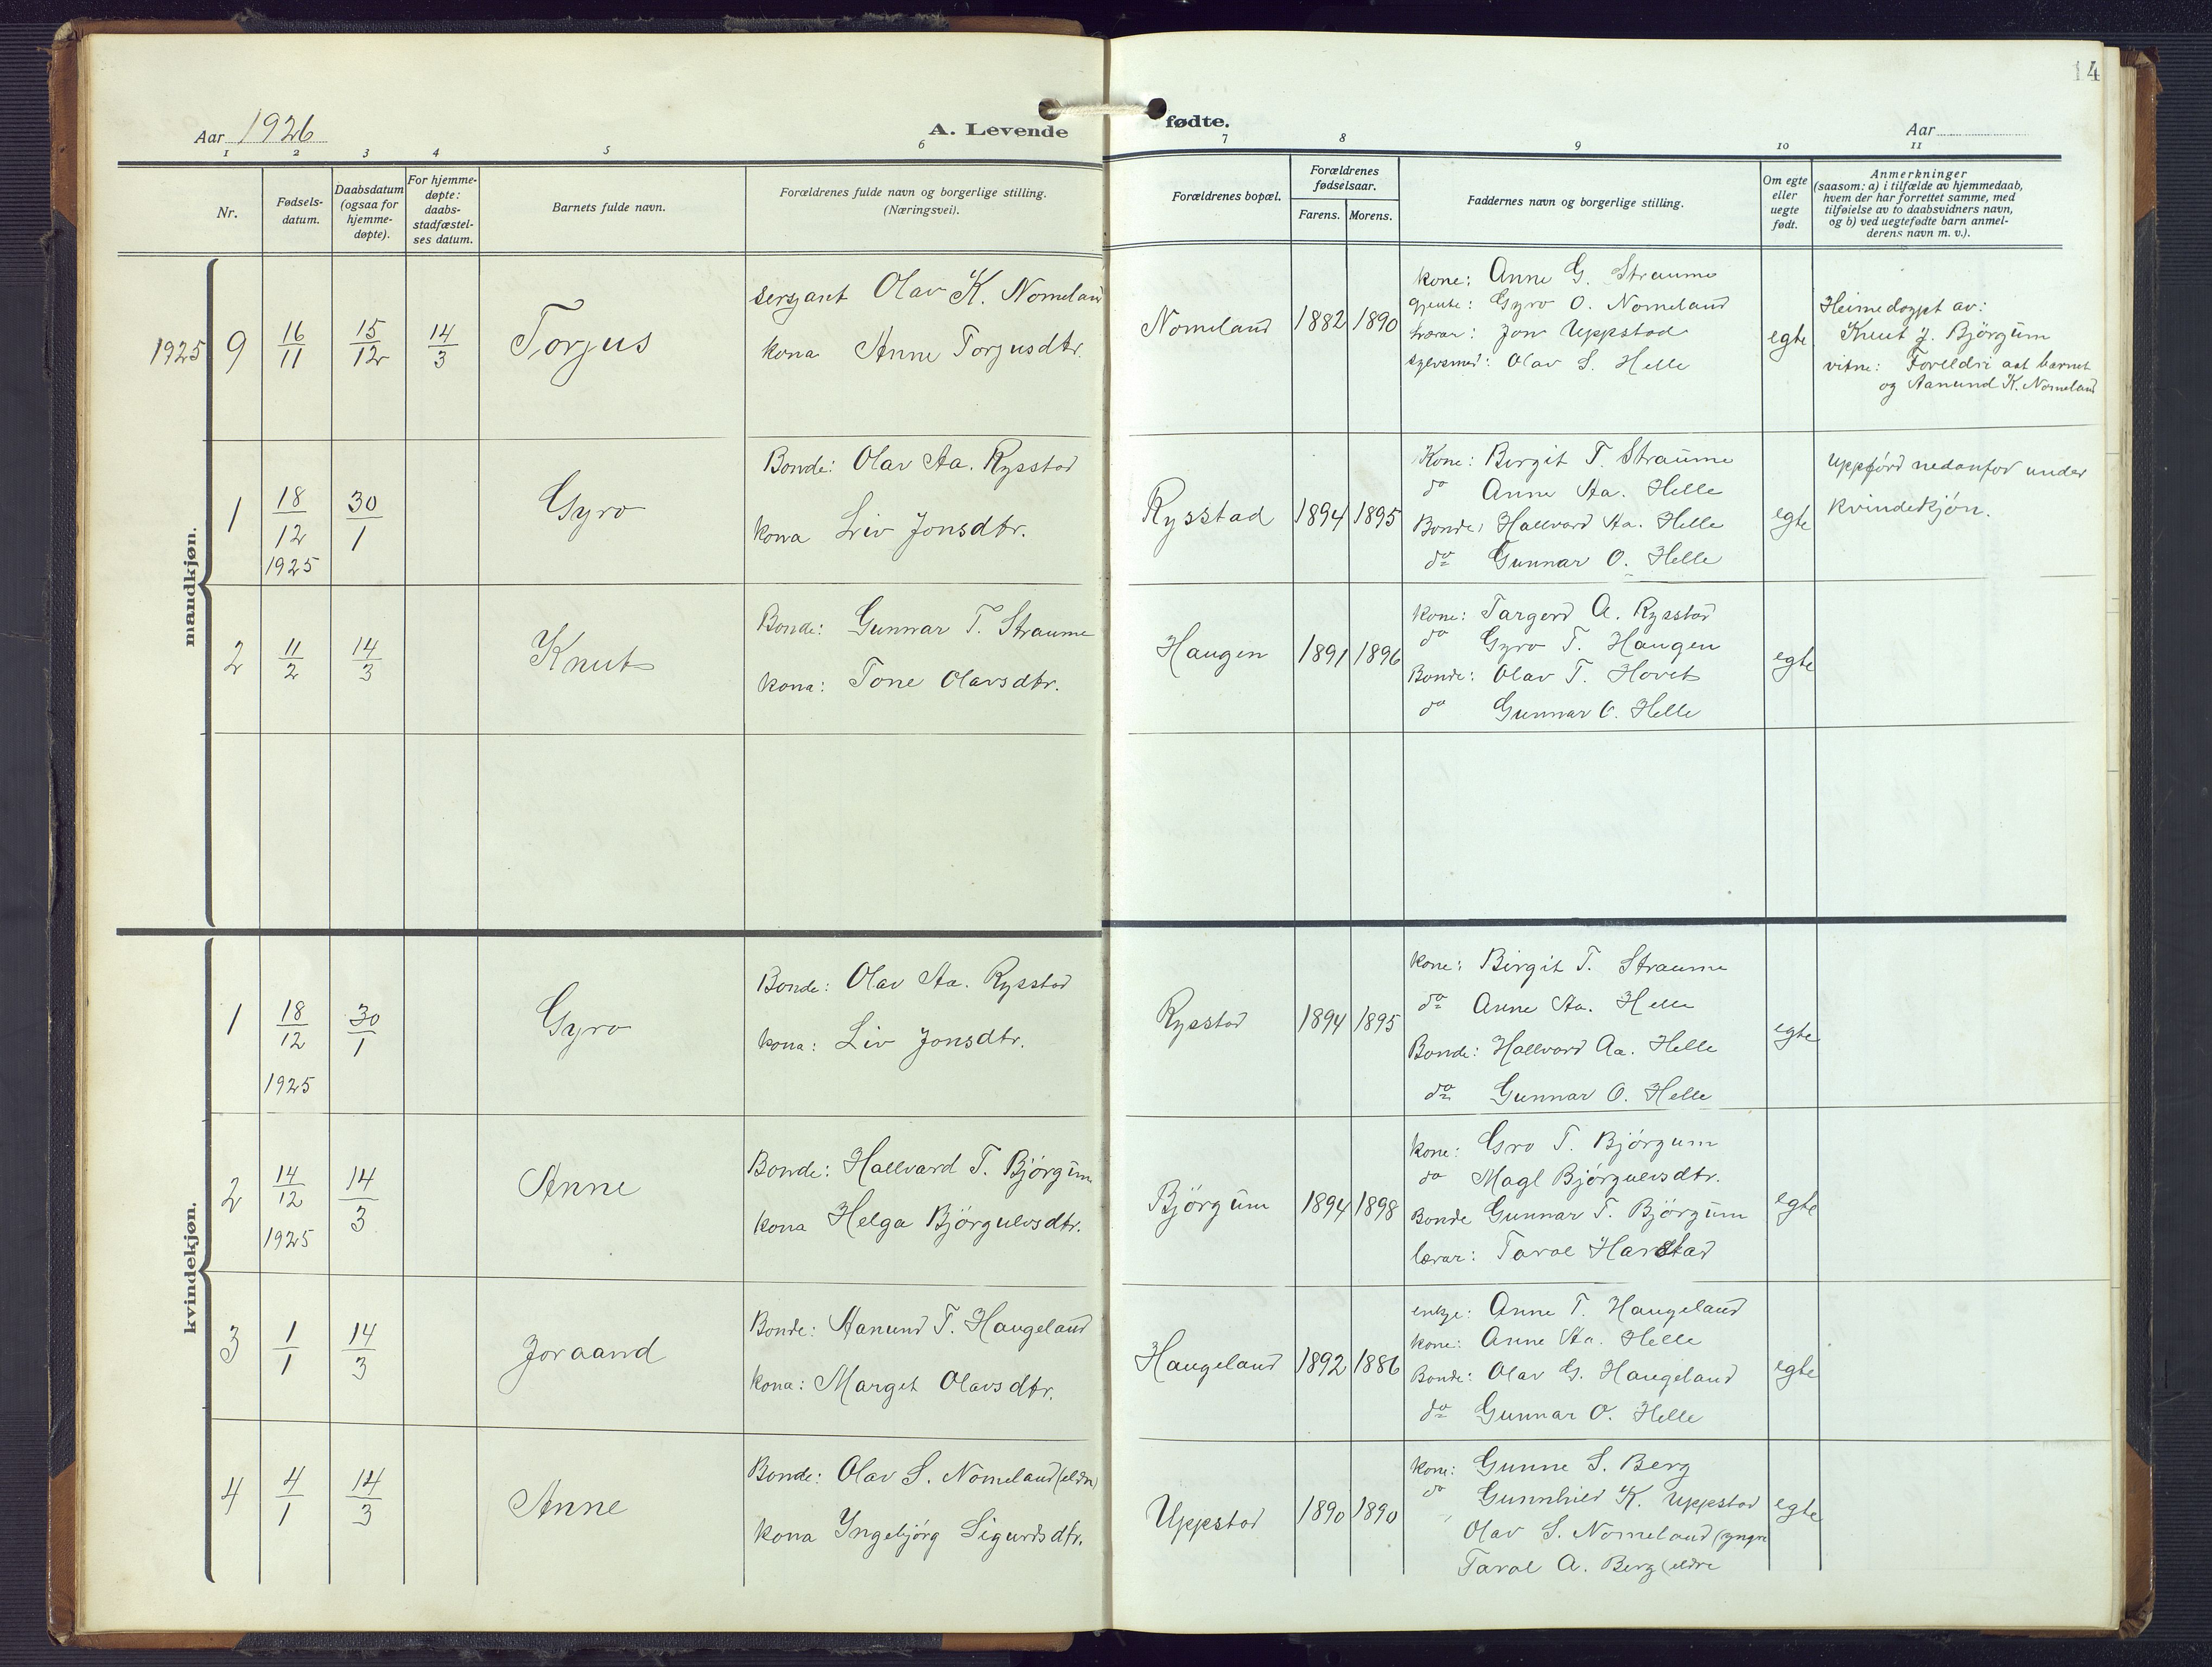 14
Aar 1926
A. Levende
fødte.
Aar
1 2 3 4 5 6 7 8 9 10 11
Nr.
Fødsels-
datum.
Daabsdatum
(ogsaa for
hjemme-
døpte).
For hjemme-
døpte:
daabs-
stadfæstel-
ses datum.
Barnets fulde navn.
Forældrenes fulde navn og borgerlige stilling.
(Næringsvei).
Forældrenes bopæl.
Forældrenes
fødselsaar.
Farens. Morens.
Faddernes navn og borgerlige stilling.
Om egte
eller
uegte
født.
Anmerkninger
(saasom: a) i tilfælde av hjemmedaab,
hvem der har forrettet samme, med
tilføielse av to daabsvidners navn,
og b) ved uegtefødte barn anmel-
derens navn m. v.).
mandkjøn.
1925 9 16/11 15/12 14/3 Torjus
sersjant Olav K. Nomeland
kona Anne Torjusdtr.
Nomeland 1882 1890
kone: Anne G. Straume
gjente: Gyro O. Nomeland
lærar: Jon Uppstad
sylvsmed: Olav S. Helle
egte
Heimedøypt av:
Knut J. Bjørgum
vitne: Foreldri aat barnet
og Aanund K. Nomeland
1 18/12 1925 30/1 Gyro
Bonde: Olav Aa. Rysstad
kona Liv Jonsdtr.
Rysstad 1894 1895
Kone: Birgit T. Straume
do Anne Aa. Helle
Bonde: Hallvard Aa. Helle
do Gunnar O. Helle
egte
Uppførd nedanfor under
kvindekjøn.
2 11/2 14/3 Knut
Bonde: Gunnar T. Straume
kona: Tone Olavsdtr.
Haugen 1891 1896
kone: Targerd A. Rysstad
do Gyro T. Haugen
Bonde: Olav T. Hovet
do Gunnar O. Helle
egte
kvindekjøn.
1 18/12 1925 30/1 Gyro
Bonde: Olav Aa. Rysstad
kona: Liv Jonsdtr.
Rysstad 1894 1895
kone: Birgit T. Straume
do Anne Aa. Helle
Bonde: Hallvard Aa. Helle
do Gunnar O. Helle
egte
2 14/12 1925 14/3 Anne
Bonde: Hallvard T. Bjørgum
kona Helga Bjørgulvsdtr.
Bjørgum 1894 1898
kone: Gro T. Bjørgum
do Magl Bjørgulvsdtr.
Bonde Gunnar T. Bjørgum
lærar: Tarol Harstad
egte
3 1/1 14/3 Joraand
Bonde: Aanund T. Haugeland
kona: Marget Olavsdtr.
Haugeland 1892 1886
enkje: Anne T. Haugeland
kone: Anne Aa. Helle
Bonde: Olav G. Haugeland
do Gunnar O. Helle
egte
4 4/1 14/3 Anne
Bonde: Olav S. Nomeland (eldre)
kona Yngebjørg Sigurdsdtr.
Uppstad 1890 1890
kone: Gunne S. Berg
do Gunnhild K. Uppstad
Olav S. Nomeland (yngre
Tarol A. Berg (eldre
egte